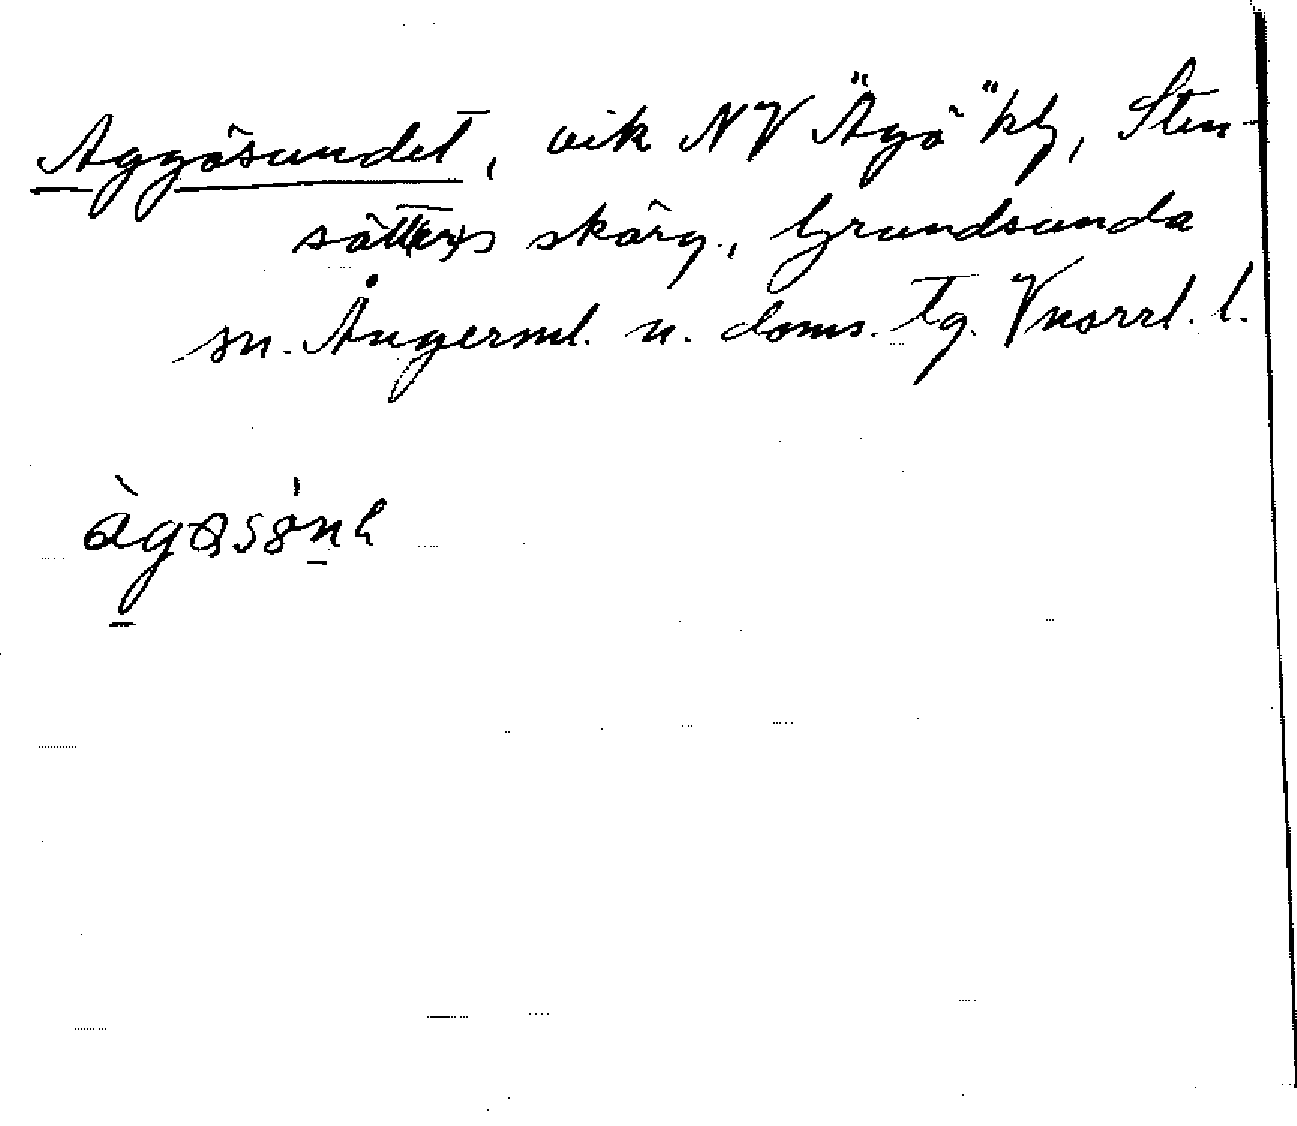 Aggösundet, vik NV "Ägö" klg, Sten-
sätters skärg., Grundsunda
sn. Ångerml. n. doms. Tg. Vnorrl. l.